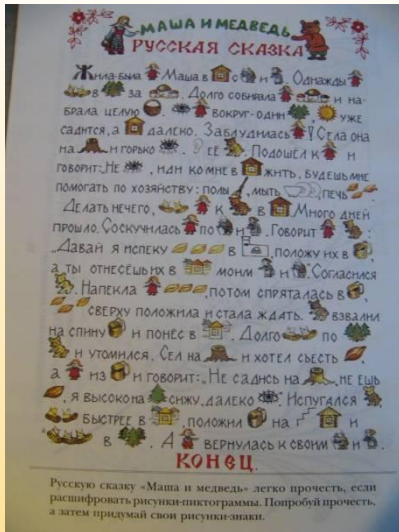 МАША И МЕДВЕДЬ
РУССКАЯ СКАЗКА
Жила-была Маша в с и . Однажды
в за . Долго собирала и на-
брала целую . вокруг-один , уже
садится, а далеко. Заблудилась ! Села она
на и горько . её . Подошёл к и
говорит: „Не , иди ко мне в жить, будешь мне
помогать по хозяйству: полы , мыть , печь .
Делать нечего, к в . Много дней
прошло. Соскучилась по и . Говорит :
„Давай я испеку в , положу их в ,
а ты отнесёшь их в моим и . Согласился
. Напекла , потом спряталась в ,
сверху положила и стала ждать. взвалил
на спину и понёс в . Долго по
и утомился. Сел на и хотел съесть ,
а из и говорит: „Не садись на , не ешь
, я высоко на сижу, далеко . Испугался ,
быстрее в , положил на и
в . А вернулась к своим и .
КОНЕЦ.
Русскую сказку «Маша и медведь» легко прочесть, если
расшифровать рисунки-пиктограммы. Попробуй прочесть,
а затем придумай свои рисунки-знаки.